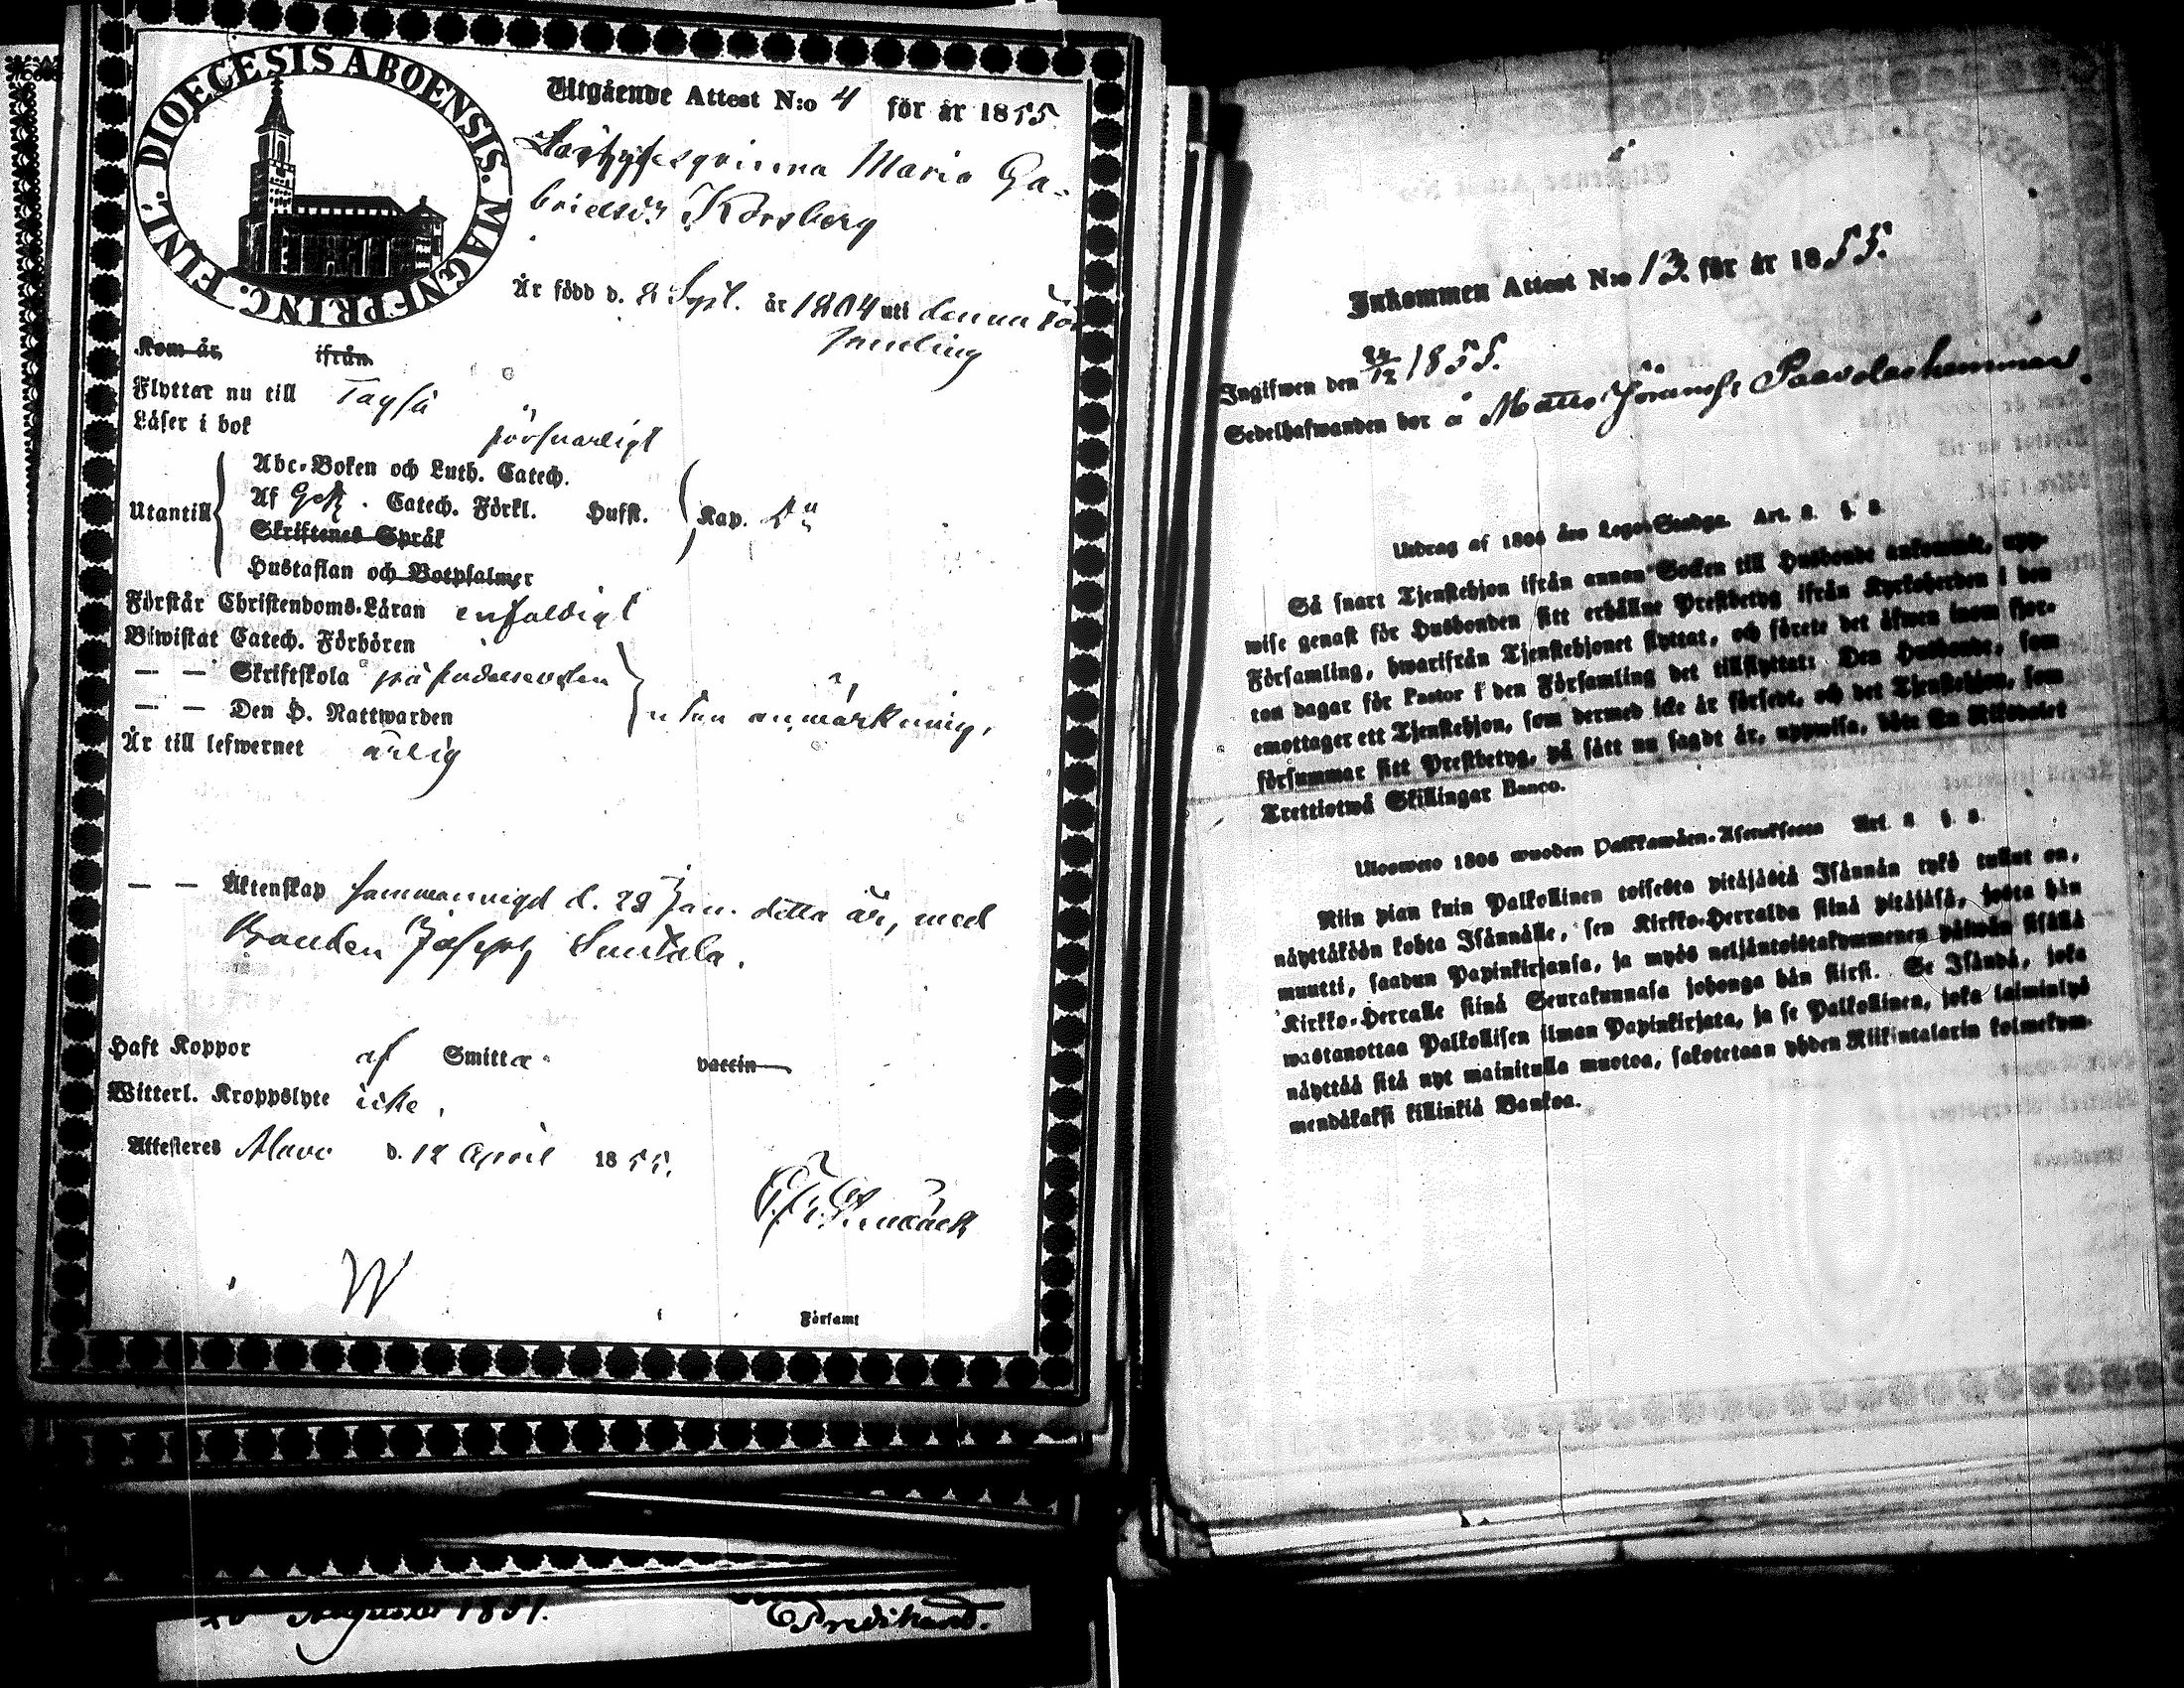 DIOECESIS ABOENSIS. MAGNI PRINC. FINL.
Utgående Attest N:o 4 för år 1855
Maria Ga-
brielsdr Korsberg
Är född d. 8 Sept. år 1804 uti denna För
samling
Kom år ifrån
Flyttar nu till Töysä
Läser i bok försvarligt
Utantill
Abc-Boken och Luth. Catech.
Af Catech. Förkl. Hufst. Kap.
Skriftenes Språk
Hustaflan och Botpsalmer
Förstår Christendoms-Läran enfaldigt
Biwistat Catech. Förhören
— — Skriftskola på
— — Den H. Nattwarden utan anmärkning.
Är till lefwernet ärlig
— — Äktenskap sammanvigd d. 29 Jan. detta år, med
Bonden Joseph
Haft Koppor af Smitta vaccin
Witterl. Kroppslyte icke.
Attesteres Alavo d. 12 April 1855.
W
Församl
Augusti 1851.
Inkommen Attest N:o 13. för år 1855.
Ingifwen den 24/12 1855.
Sedelhafwanden bor å Matts
Utdrag af 1805 års Lego-Stadga. Art. 2. §. 8.
Så snart Tjenstehjon ifrån annan Socken till Husbonde ankommit, upp-
wise genast för Husbonden sitt erhållne Prestbetyg ifrån Kyrkoherden i den
Församling, hwarifrån Tjenstehjonet flyttat, och förete det äfwen inom fjor-
ton dagar för Pastor i den Församling det tillflyttat: Den Husbonde, som
emottager ett Tjenstehjon, som dermed icke är försedt, och det Tjenstehjon, som
försummar sitt Prestbetyg, på sätt nu sagdt är, uppwisa, böte En Riksdaler
Trettiotwå Skillingar Banco.
Ulosweto 1805 wuoden Palkkawäen-Asetuksesta Art. 2. §. 8.
Niin pian kuin Palkollinen toisesta pitäjästä Isännän tykö tullut on,
näyttäköön kohta Isännälle, sen Kirkko-Herralda siinä pitäjäsä, josta hän
muutti, saadun Papinkirjansa, ja myös neljäntoistakymmenen päiwän sisällä
Kirkko-Herralle siinä Seurakunnasa johonga hän siirsi. Se Isändä, joka
wastanottaa Palkollisen ilman Papinkirjata, ja se Palkollinen, joka laiminlyö
näyttää sitä nyt mainitulla muotoa, sakotetaan yhden Riikintalarin kolmekym-
mendäkaksi killinkiä Bankoa.